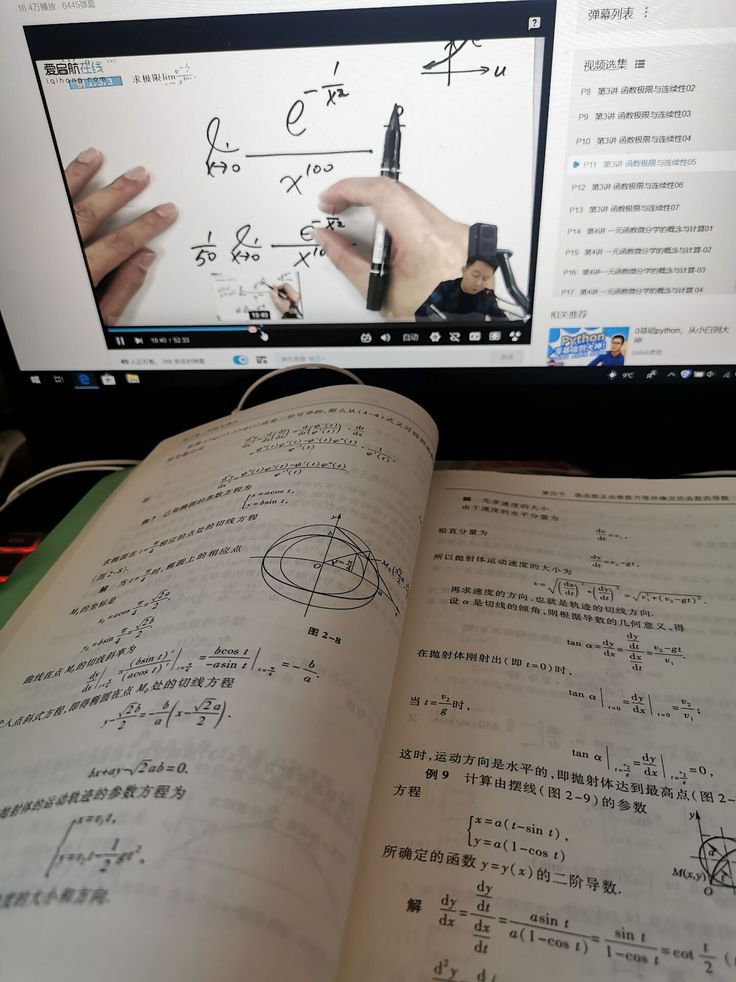 16.4万播放 6445弹幕
弹幕列表
爱启航在线
iqihang.com
例 1.3.3
求极限
lim
x→0
e^{-1/x²}
x^{100}
1/50
x→0
u
视频选集
P8 第3讲 函数极限与连续性02
P9 第3讲 函数极限与连续性03
P10 第3讲 函数极限与连续性04
P11 第3讲 函数极限与连续性05
P12 第3讲 函数极限与连续性06
P13 第3讲 函数极限与连续性07
P14 第4讲 一元函数微分学的概念与计算01
P15 第4讲 一元函数微分学的概念与计算-02
P16 第4讲 一元函数微分学的概念与计算-03
P17 第4讲 一元函数微分学的概念与计算 04
相关推荐
Python
零基础到大神!
0基础python，从小白到大
神
19:40
19:40 / 52:33
自动
9°C
例7 已知椭圆的参数方程为
{x=acos t,
y=bsin t,
求椭圆在 t=π/4 相应的点处的切线方程
(图 2-8).
解 当 t=π/4 时,椭圆上的相应点
M₀的坐标是
x₀=acos π/4=√2a/2,
y₀=bsin π/4=√2b/2.
图 2-8
曲线在点 M₀的切线斜率为
dy/dx|_{t=π/4}=(bsin t)'/(acos t)'|_{t=π/4}=bcos t/-asin t|_{t=π/4}=-b/a.
入点斜式方程,即得椭圆在点 M₀ 处的切线方程
y-√2b/2=-b/a(x-√2a/2).
bx+ay-√2ab=0.
抛射体的运动轨迹的参数方程为
{x=v₁t,
y=v₂t-1/2gt²,
度的大小和方向.
第四节 隐函数及由参数方程所确定的函数的导数
解 先求速度的大小.
由于速度的水平分量为
dx/dt=v₁,
铅直分量为
dy/dt=v₂-gt,
所以抛射体运动速度的大小为
v=√((dx/dt)²+(dy/dt)²)=√(v₁²+(v₂-gt)²).
再求速度的方向,也就是轨迹的切线方向.
设 α 是切线的倾角,则根据导数的几何意义,得
tan α=dy/dx=(dy/dt)/(dx/dt)=(v₂-gt)/v₁.
在抛射体刚射出(即 t=0)时,
tan α|_{t=0}=dy/dx|_{t=0}=v₂/v₁;
当 t=v₂/g 时,
tan α|_{t=v₂/g}=dy/dx|_{t=v₂/g}=0,
这时,运动方向是水平的,即抛射体达到最高点(图 2-
例 9 计算由摆线(图 2-9)的参数
方程
{x=a(t-sin t),
y=a(1-cos t)
M(x,y)
所确定的函数 y=y(x)的二阶导数.
解 dy/dx=(dy/dt)/(dx/dt)=asin t/a(1-cos t)=sin t/1-cos t=cot t/2 (
d²y